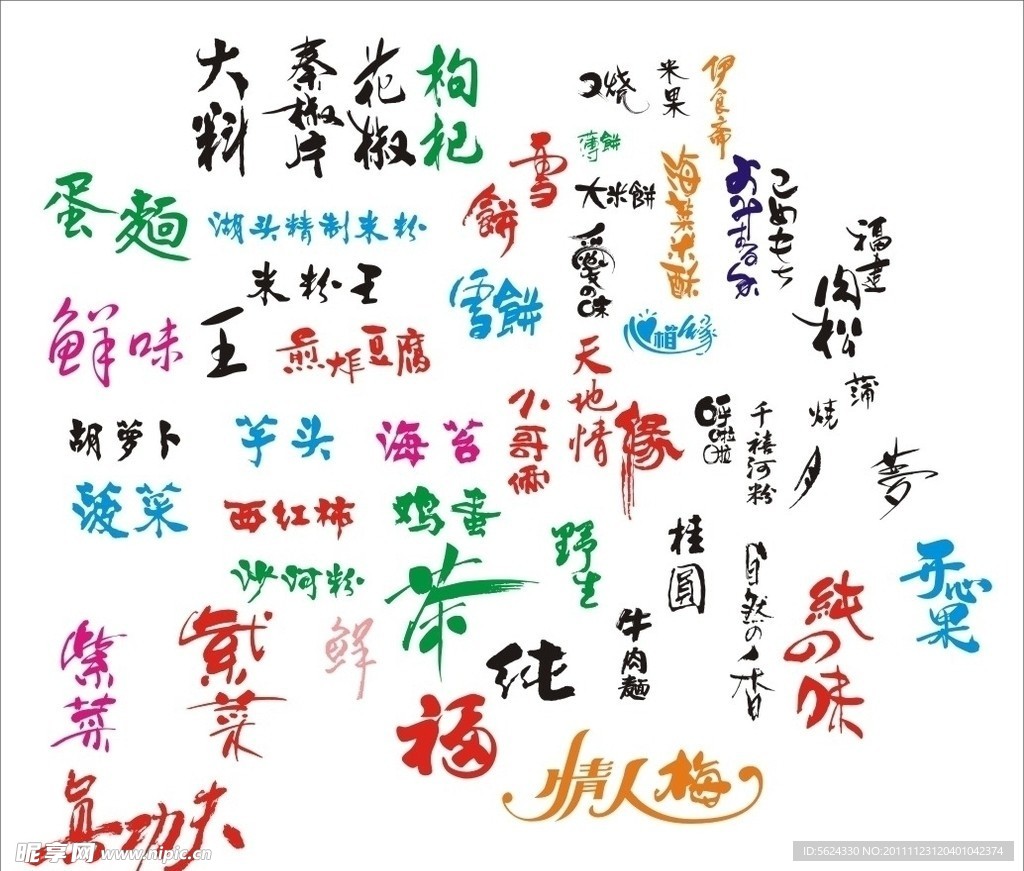 大料
秦椒片
花椒
枸杞
口烧
米果
伊食斋
薄餅
雪餅
大米餅
海菜米酥
こめもち
蛋麵
湖头精制米粉
愛の味
福建肉松
米粉王
雪餅
相缘
鲜味
王
煎炸豆腐
天地情缘
小哥俩
蒲烧
夕
夢
呼啦啦
千禧河粉
胡萝卜
芋头
海苔
菠菜
西红柿
鸡蛋
野生
桂圓
自然の香
开心果
沙河粉
茶
純の味
紫菜
紫菜
鲜
纯
牛肉麵
福
情人梅
真功夫
昵享网 www.nipic.cn
ID:5624330 NO:20111123120401042374